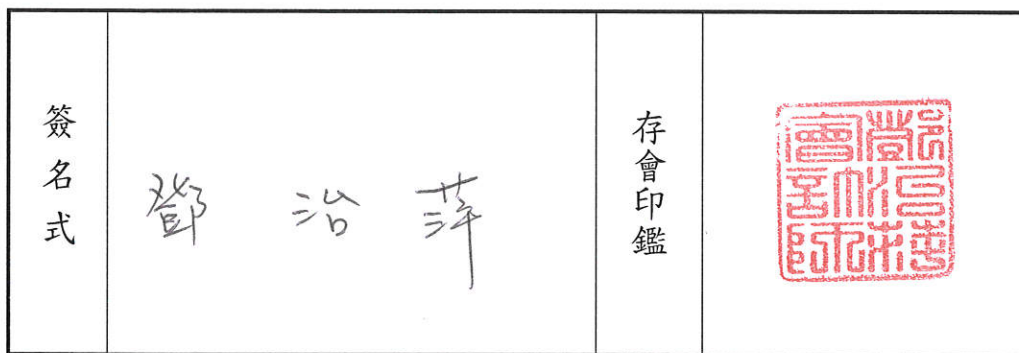 簽名式
鄧治萍
存會印鑑
鄧治萍會計師